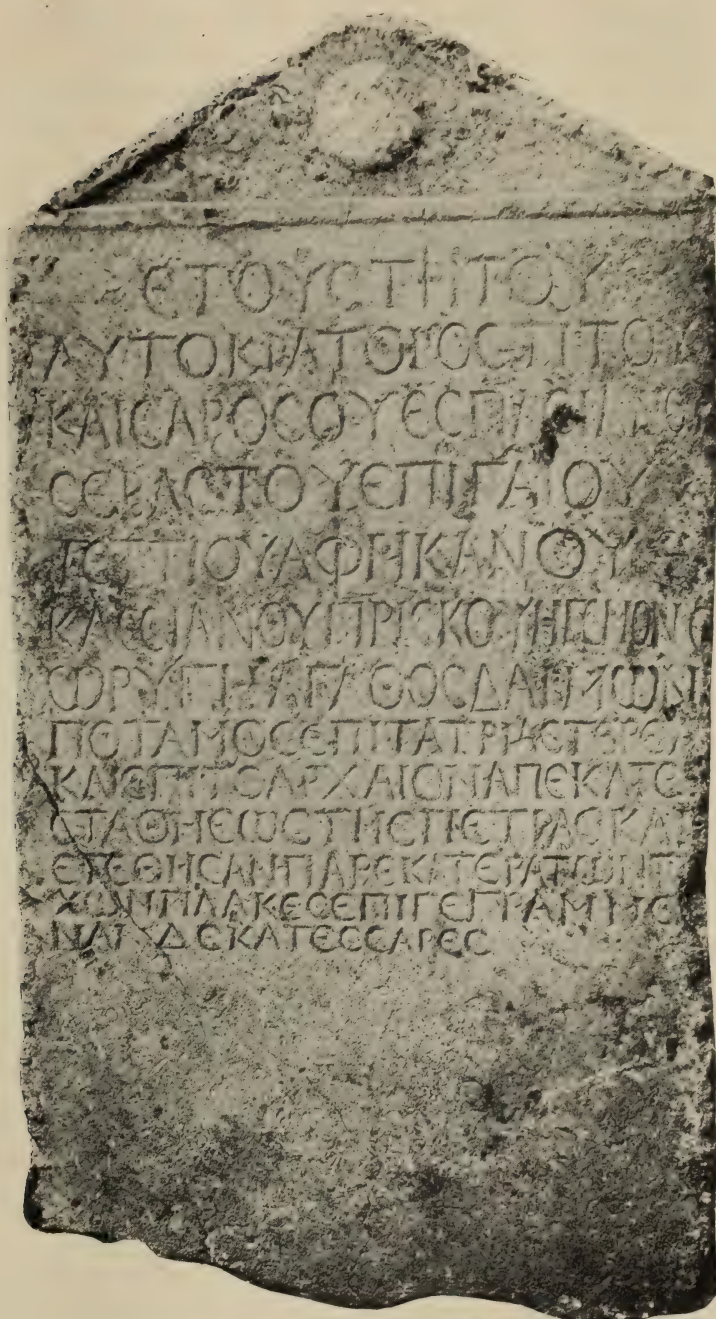 ΕΤΟΥϹΤΡΙΤΟΥ
ΑΥΤΟΚΡΑΤΟΡΟϹΤΙΤΟΥ
ΚΑΙϹΑΡΟϹΟΥΕϹΠΑϹΙΑΝΟ
ϹΕΒΑϹΤΟΥΕΠΙΓΑΙΟΥ
ΤΕΤΤΙΟΥΑΦΡΙΚΑΝΟΥ
ΚΑϹϹΙΑΝΟΥΠΡΙϹΚΟΥΗΓΕΜΟΝΟ
ωΡΥΓΗΑΓΑΘΟϹΔΑΙΜωΝ
ΠΟΤΑΜΟϹΕΠΙΤΑΤΡΙΑϹΤΕΡΕΑ
ΚΑΙΕΠΙΤΟΑΡΧΑΙΟΝΑΠΕΚΑΤΕ
ϹΤΑΘΗΕωϹΤΗϹΠΕΤΡΑϹΚΑΙ
ΕΤΕΘΗϹΑΝΠΑΡΕΚΑΤΕΡΑΤωΝΤΙ
ΧωΝΠΛΑΚΕϹΕΠΙΓΕΓΡΑΜΜΕ
ΝΑΙ ΔΕΚΑΤΕϹϹΑΡΕϹ